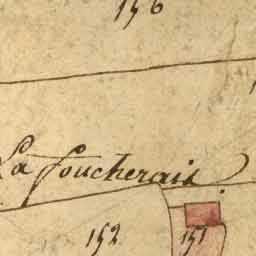 156
La Foucherais
152 151